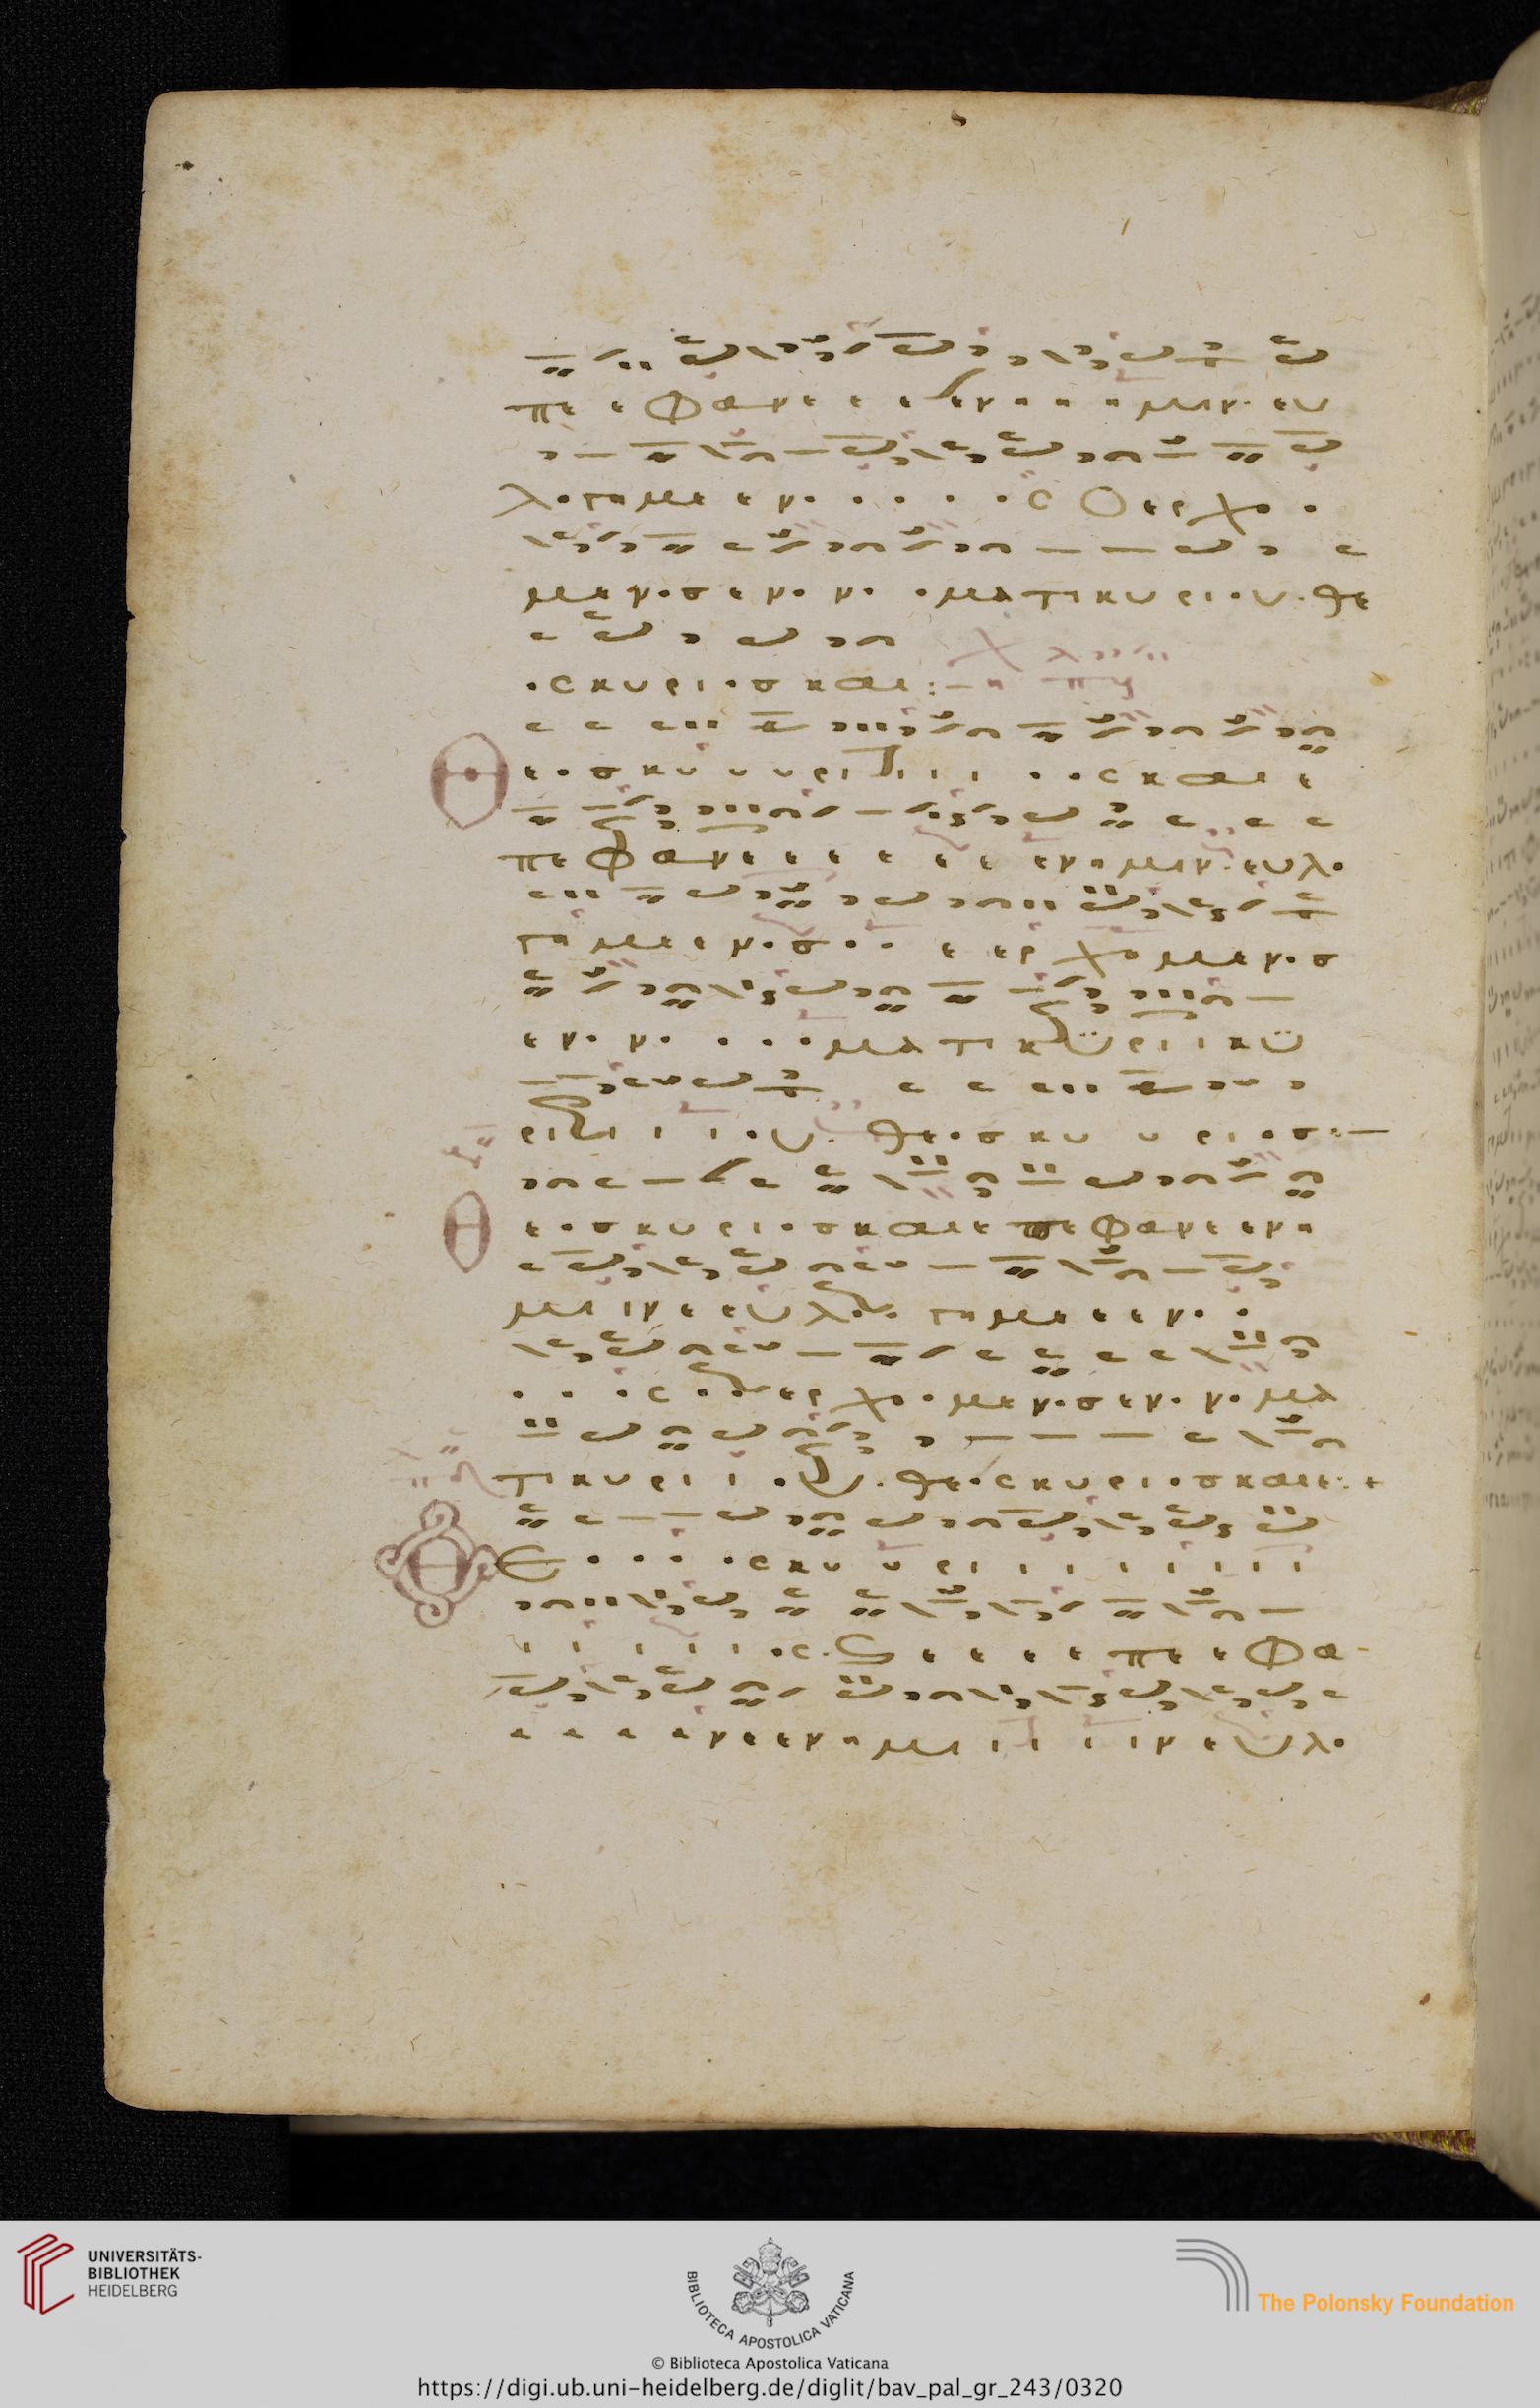 πε ε φα νε ε ε ε εν η η η μιν. ευ
λο γη με ε νο ο ο ο ος Ο ερ χο ο
με νοσ εν ο νο ο μα τι κυ ρι ου. Θε
ος κυριοσ και :–
Θ ε οσ κυ υ υ ρι ι ι ι ο ος και ε
πε φα νε ε ε ε ε ε εν ημιν. ευλο
γη με ε νοσ ο ο ε ερ χο μενοσ
εν ο νο ο ο ο μα τι κυ ρι ι κυ
ρι ι ι ι ου. Θεοσ κυ υ ριοσ :–
Θ ε οσ κυριοσ και ε πε φανε εν η
μι ιν ε ευλο γη με ε ε νο ο
ο ο ος ο ερ χο ο μενοσ εν ο νο μα
τι κυρι ι ου. Θεος κυριοσ και :+
Θ Ε ο ο ο ος κυ υ ρι ι ι ι ι ι ι ι
ι ι ι ι ι ος. ε ε ε ε πε ε φα
α α α α νε εν η μι ι ι ι ιν ευλο
UNIVERSITÄTS-
BIBLIOTHEK
HEIDELBERG
BIBLIOTECA APOSTOLICA VATICANA
The Polonsky Foundation
© Biblioteca Apostolica Vaticana
https://digi.ub.uni-heidelberg.de/diglit/bav_pal_gr_243/0320